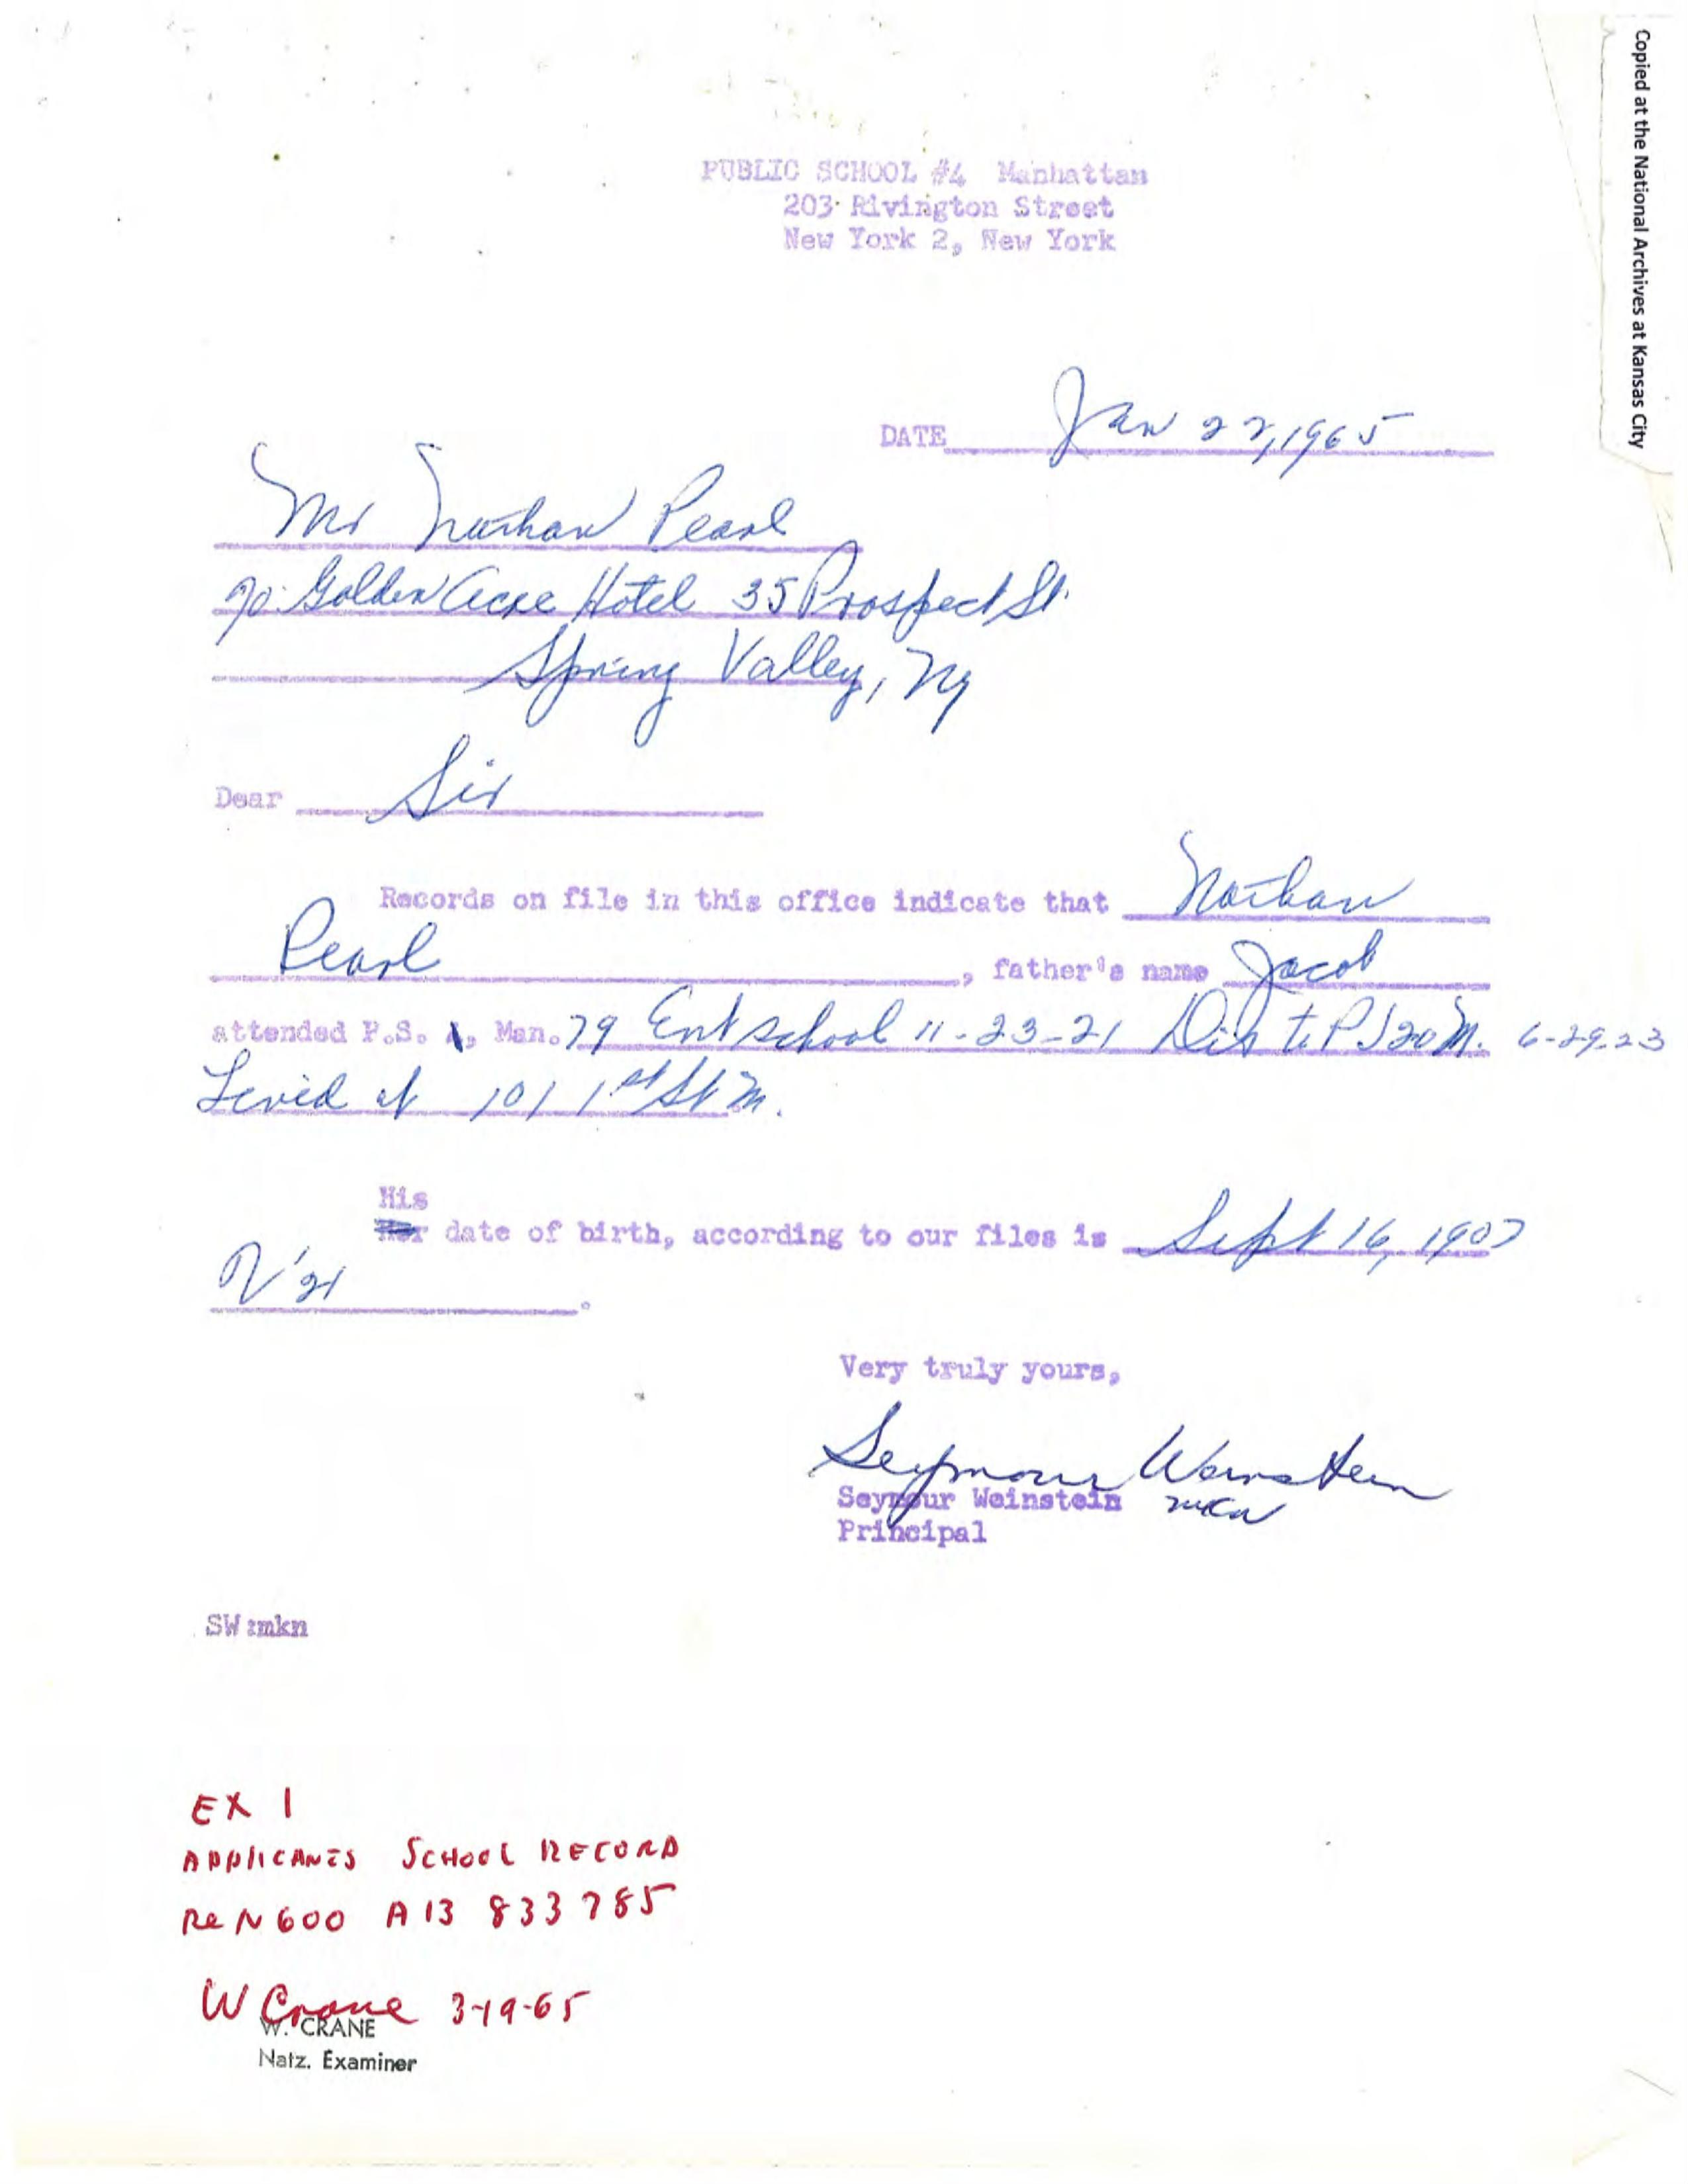 Copied at the National Archives at Kansas City
PUBLIC SCHOOL #4 Manhattan
203 Rivington Street
New York 2, New York
DATE Jan 22, 1965
Mr Nathan Pearl
Golden Acre Hotel 35 Prospect St.
Spring Valley, NY
Dear Sir
Records on file in this office indicate that Nathan
Pearl, father's name Jacob
attended P.S. , Man. 79 Ent school 11-23-21 Dis to PS 20 M. 6-29-23
Lived at 101 1st St M.
His
date of birth, according to our files is Sept 16, 1907
.
Very truly yours,
Seymour Weinstein
Seymour Weinstein
Principal
SW:mkn
EX 1
APPLICANTS SCHOOL RECORD
Re N600 A13 833 785
W Crane 3-19-65
W. CRANE
Natz. Examiner